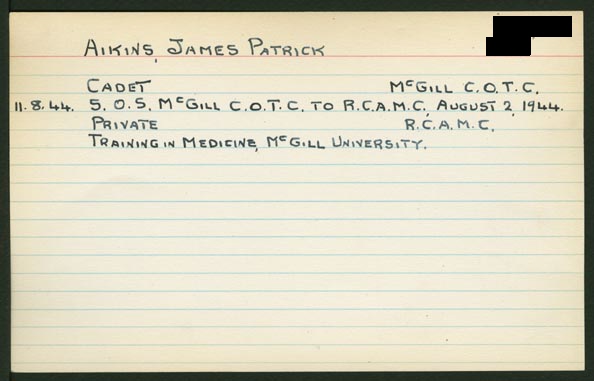 AIKINS, JAMES PATRICK
CADET McGILL C.O.T.C.
11.8.44. S.O.S. McGILL C.O.T.C. TO R.C.A.M.C., AUGUST 2, 1944.
PRIVATE R.C.A.M.C.
TRAINING IN MEDICINE, McGILL UNIVERSITY.